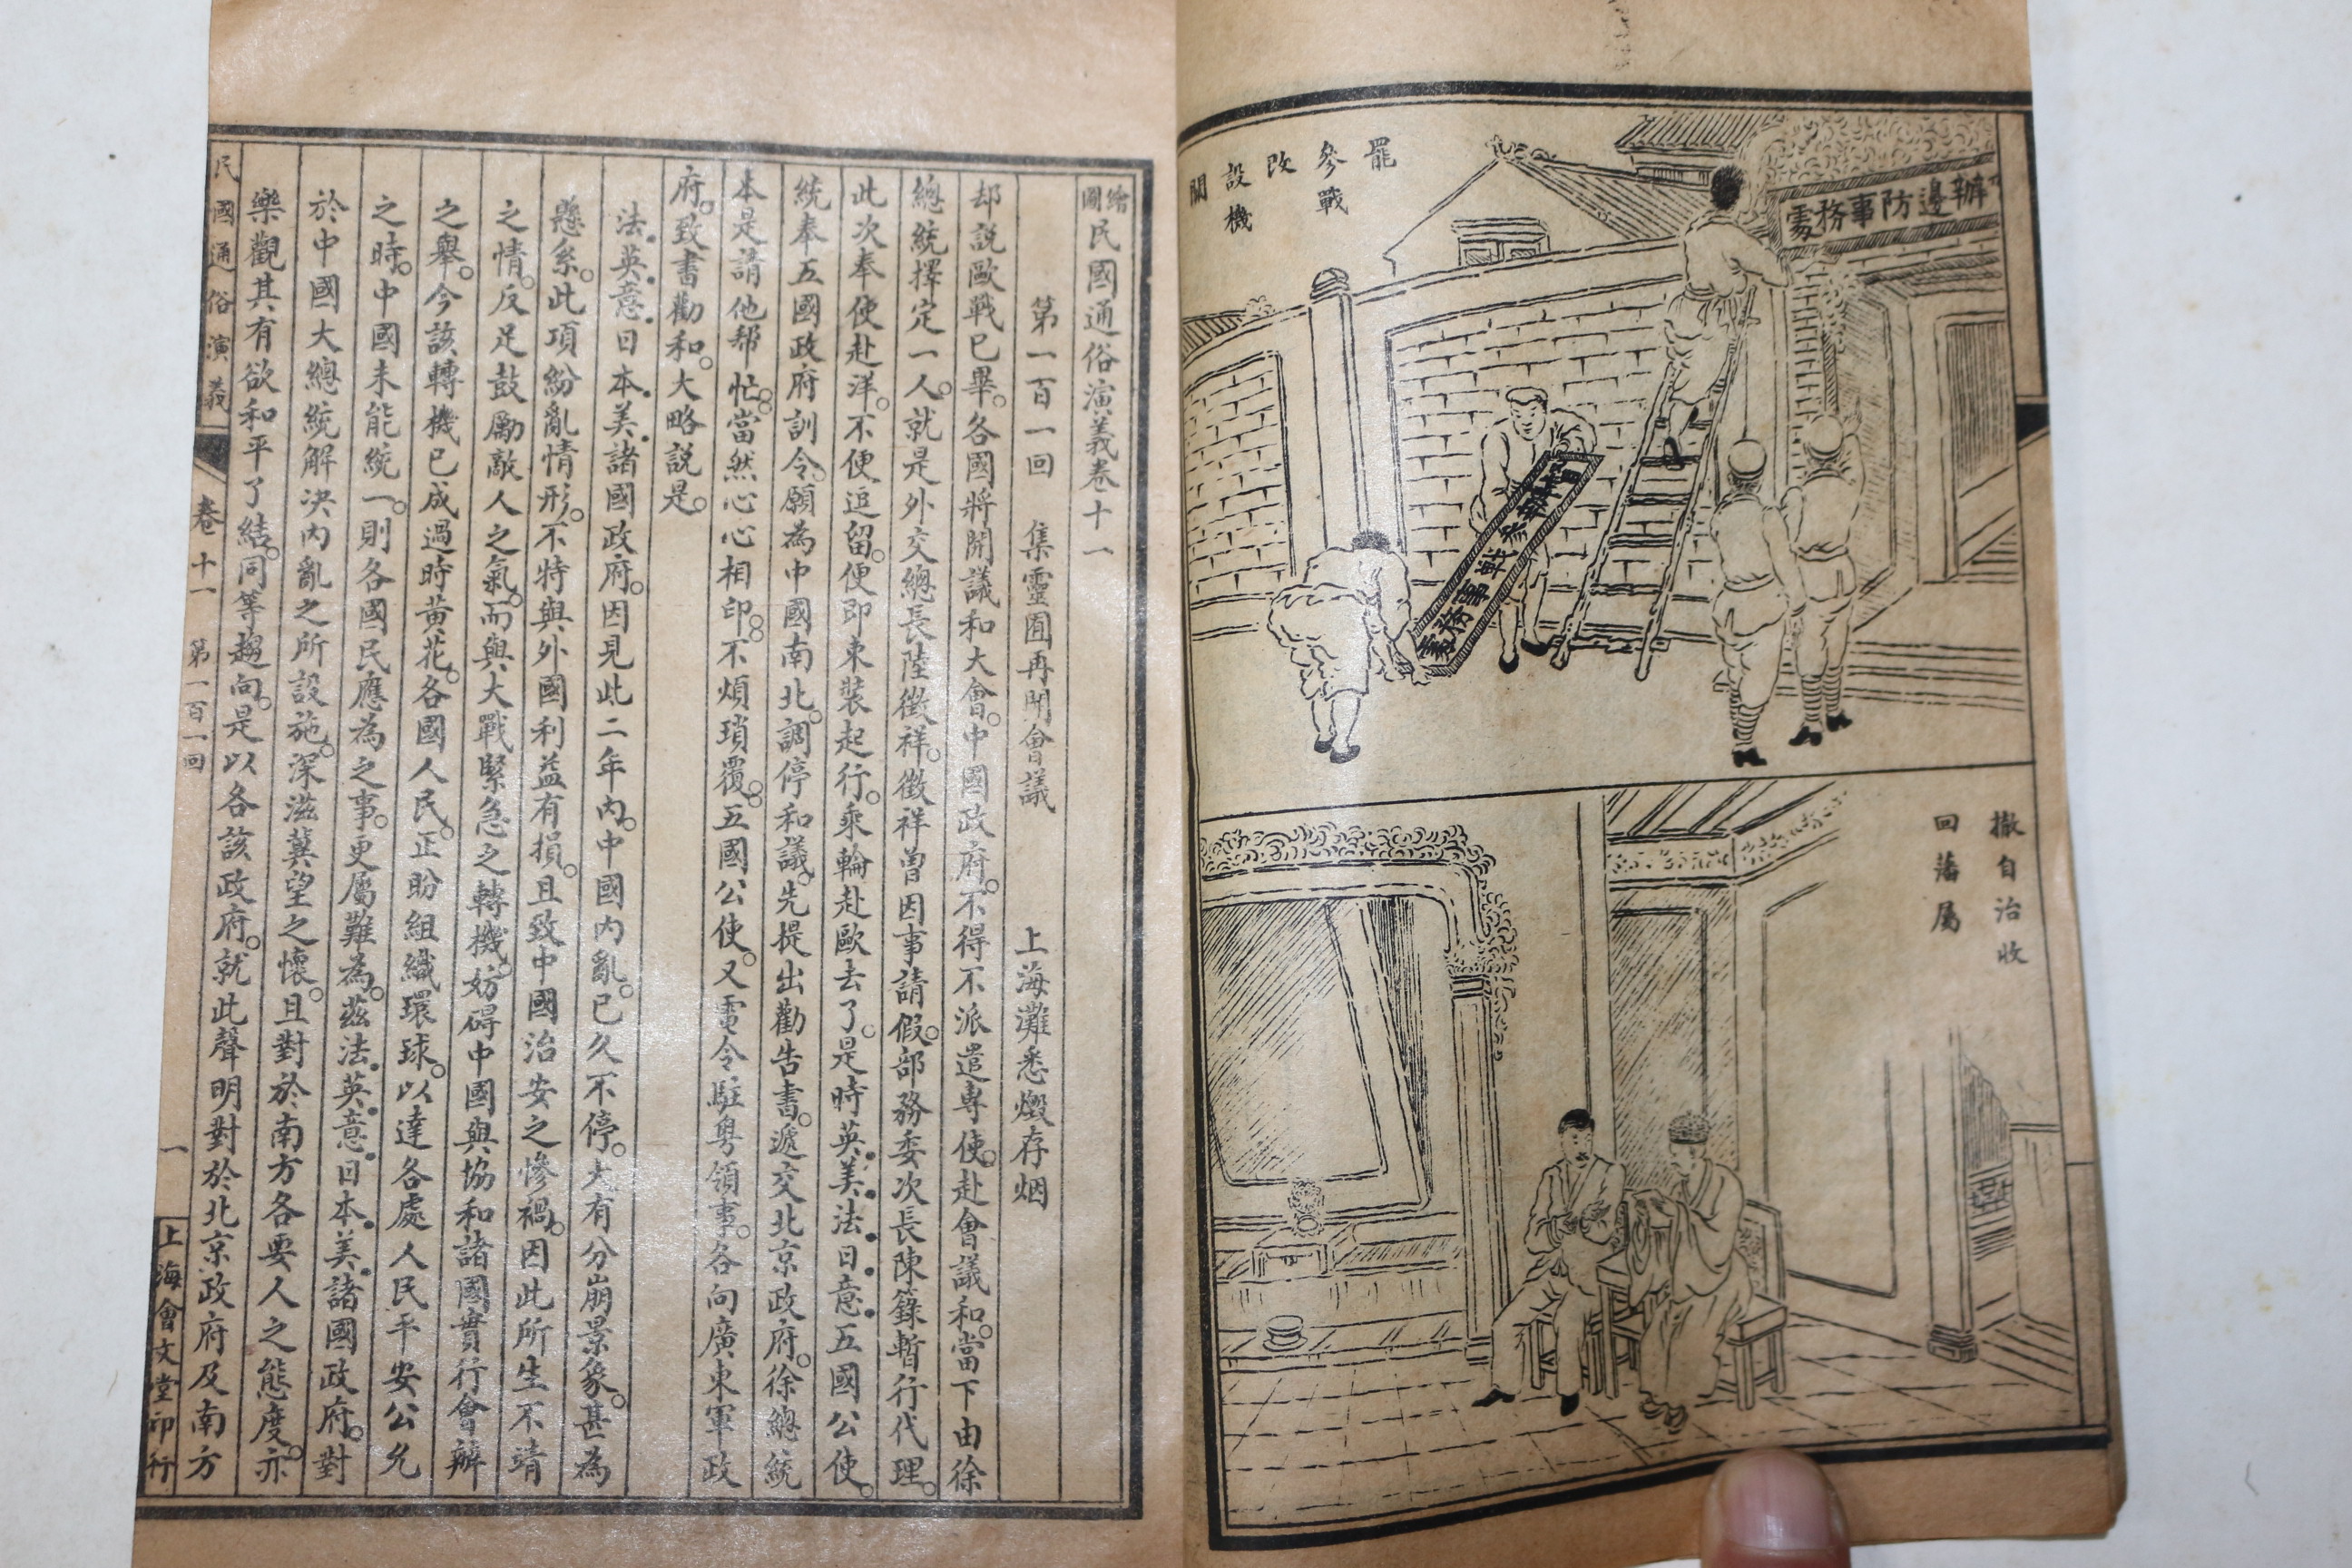 罷
參戰
改
設機
關
督辦邊防事務處
督辦參戰事務處
撤自治收
回藩屬
繪圖民國通俗演義卷十一
第一百一回　集靈囿再開會議　上海灘悉燬存烟
却說歐戰已畢。各國將開議和大會。中國政府。不得不派遣專使。赴會議和。當下由徐
總統擇定一人。就是外交總長陸徵祥。徵祥曾因事請假。部務委次長陳籙暫行代理。
此次奉使赴洋。不便逗留。便即束裝起行。乘輪赴歐去了。是時英美法日意五國公使。
統奉五國政府訓令。願為中國南北。調停和議。先提出勸告書。遞交北京政府。徐總統
本是請他帮忙。當然心心相印。不煩瑣覆。五國公使。又電令駐粵領事。各向廣東軍政
府。致書勸和。大略説是。
法英意日本美諸國政府。因見此二年內。中國內亂。已久不停。大有分崩景象。甚為
懸系。此項紛亂情形。不特與外國利益有損。且致中國治安之慘禍。因此所生不靖
之情。反足鼓勵敵人之氣。而與大戰緊急之轉機。妨碍中國與協和諸國實行會辦
之舉。今該轉機已成過時黃花。各國人民。正盼組織環球。以達各處人民平安公允
之時。中國未能統一。則各國民應為之事。更屬難為。茲法英意日本美諸國政府。對
於中國大總統解決內亂之所設施。深滋冀望之懷。且對於南方各要人之態度。亦
樂觀其有欲和平了結。同等趨向。是以各該政府。就此聲明對於北京政府及南方
民國通俗演義　卷十一　第一百一回　一　上海會文堂印行